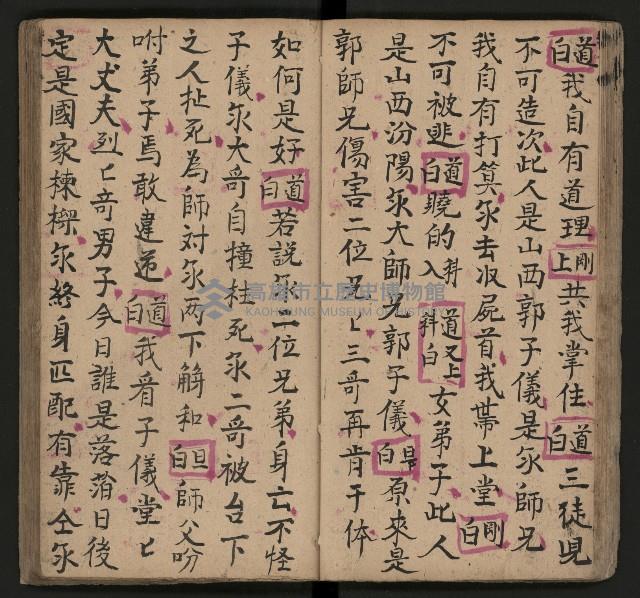 道白我自有道理剛上共我掌住道白三徒児
不可造次此人是山西郭子儀是尔師兄
我自有打算尔去收屍首我帶上堂剛白
不可被逃道白曉的入科道又上科白女弟子此人
是山西汾陽尔大師兄郭子儀旦白原來是
郭師兄傷害二位兄〻三哥再肯干休
如何是好道白若説尔二位兄弟身亡不怪
子儀尔大哥自撞柱死尔二哥被台下
之人扯死為師对尔两下解和旦白師父吩
咐弟子焉敢違逆道白我看子儀堂〻
大丈夫烈〻奇男子今日誰是落泊日後
定是國家棟樑尔終身匹配有靠仝尔
高雄市立歷史博物館
KAOHSIUNG MUSEUM OF HISTORY